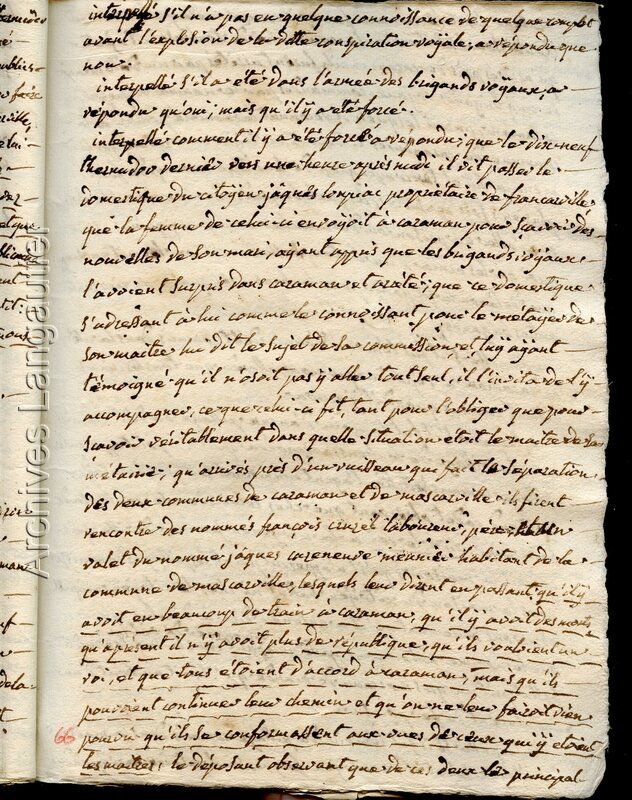 interpellé s'il n'a pas eu quelque connoissance de quelque complot
avant l'explosion de la ditte conspiration royale, a répondu que
non.
interpellé s'il a été dans l'armée des brigands royaux, a
répondu qu'oui, mais qu'il y a été forcé.
interpellé comment il y a été forcé a répondu, que le dix neuf
thermidor dernier vers une heure après midi il vit passer le
domestique du citoyen jâques propriétaire de francarville
que la femme de celui-ci envoyoit à caraman pour sçavoir des
nouvelles de son mari, ayant appris que les brigands royaux
l'avoient surpris dans caraman et arrêté; que ce domestique
s'adressant à lui comme le connoissant pour le métayer de
son maitre lui dit le sujet de la commission, et luy ayant
témoigné qu'il n'osoit pas y aller tout seul, il l'invita de l'y
accompagner, ce que celui-ci fit, tant pour l'obliger que pour
sçavoir véritablement dans quelle situation étoit le maitre de sa
métairie; qu'arrivés près d'un ruisseau qui fait la séparation
des deux communes de caraman et de mascarville ils firent
rencontre des nommés françois cruzel laboureur, père, et un
valet du nommé jâques careneuve meunier habitant de la
commune de mascarville, lesquels leur dirent en passant qu'il y
avoit eu beaucoup de train à caraman, qu'il y avoit des morts,
qu'apresent il n'y avoit plus de république, qu'ils vouloient un
roi, et que tous étoient d'accord à caraman, mais qu'ils
pouvoient continuer leur chemin et qu'on ne leur fairoit rien
pourvu qu'ils se conformassent aux vues de ceux qui y etoient
les maitres; le déposant observant que de ces deux le principal
66
Archives Langautier